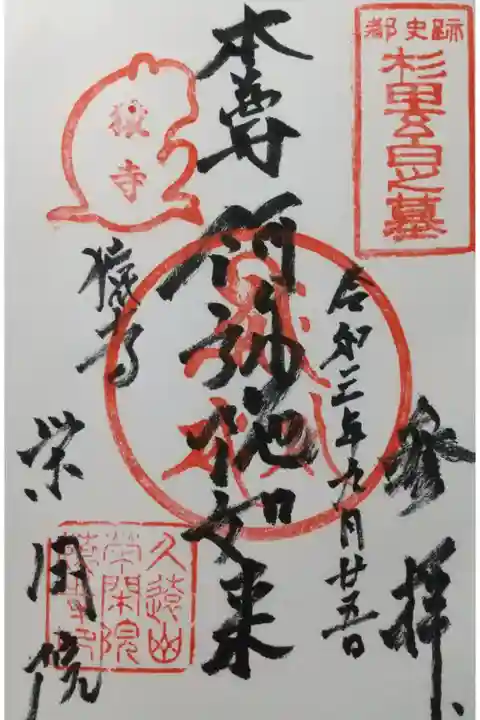 都史跡
杉田玄白之墓
参拝
令和三年九月廿五日
本尊
阿弥陀如来
猿寺
猿寺
栄閑院
久遠山
栄閑院